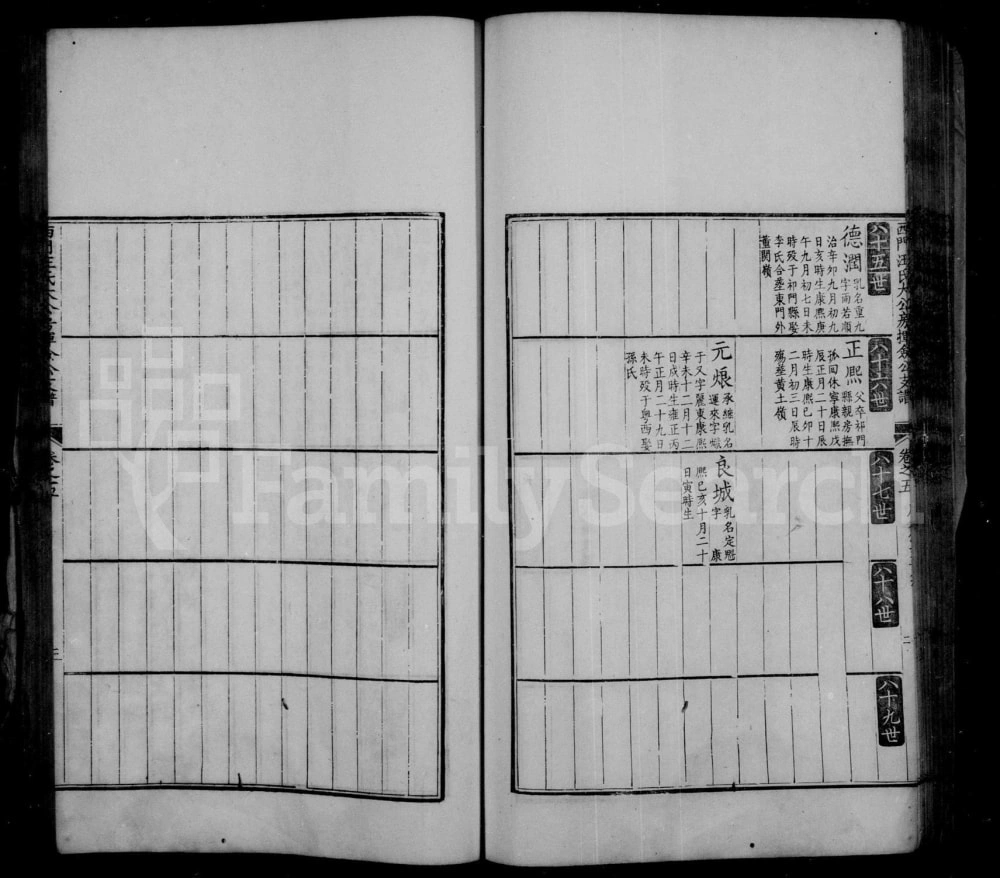 西門汪氏大公房揮僉公支譜 卷之五
二
八十五世
德潤 乳名重九
字雨若順
治辛卯九月初九
日亥時生康熙庚
午九月初七日未
時歿于祁門縣娶
李氏合塟東門外
董閔嶺
八十六世
正熙 父卒祁門
縣親房撫
孤回休寧康熙戊
辰正月二十日辰
時生康熙己卯十
二月初三日辰時
殤塟黄土嶺
元烺 承繼乳名
運來字
于又字麗東康熙
辛未十二月十二
日戌時生雍正丙
午正月二十九日
未時歿于粤西娶
孫氏
八十七世
良城 乳名定魁
字 康
熙己亥十月二十
日寅時生
八十八世
八十九世
卷之五
三
FamilySearch